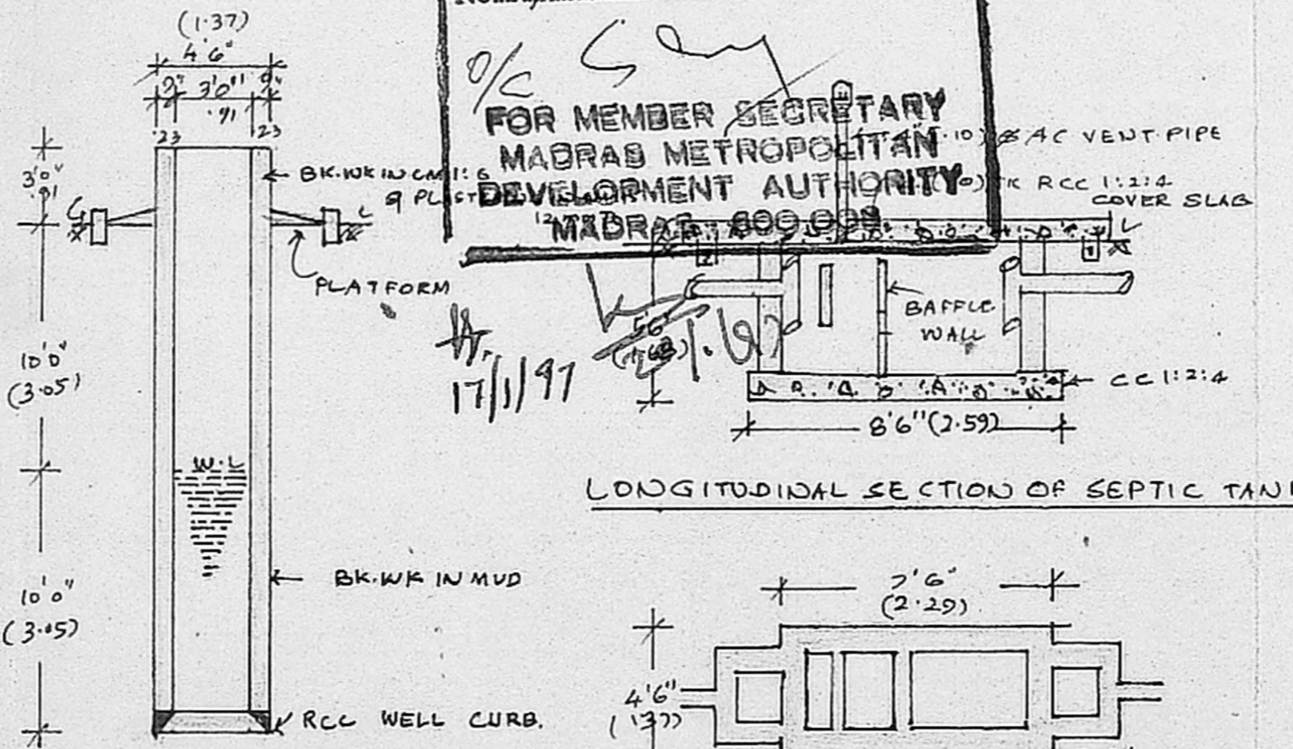 (1.37)
4'6"
9" 3'0" 9"
.23 .91 .23
3'0"
.91
BK.WK IN CM 1:6
PLATFORM
10'0"
(3.05)
W.L
BK.WK IN MUD
10'0"
(3.05)
RCC WELL CURB.
O/C
FOR MEMBER SECRETARY
MADRAS METROPOLITAN
DEVELOPMENT AUTHORITY
MADRAS 600 008.
17/1/97
AC VENT PIPE
RCC 1:2:4
COVER SLAB
BAFFLE
WALL
CC 1:2:4
8'6" (2.59)
LONGITUDINAL SECTION OF SEPTIC
7'6"
(2.29)
4'6"
(1.37)